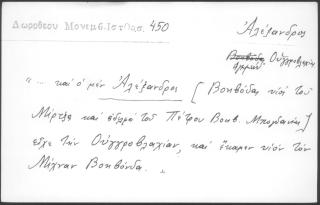 Δωροθέου Μονεμβ. Ιστ. σελ. 450
Ἀλέξανδρος
Βοηβόδα Οὑγγροβλαχίας
"... καὶ ὁ μὲν Ἀλέξανδρος [Βοηβόδας, υἱὸς τοῦ
Μίρτζε καὶ ἀδελφὸ τοῦ Πέτρου Βοηβ. Μπογδανίας]
εἶχε τὴν Οὐγγροβλαχίαν, καὶ ἔκαμεν υἱὸν τὸν
Μίχναν Βοηβόνδα.